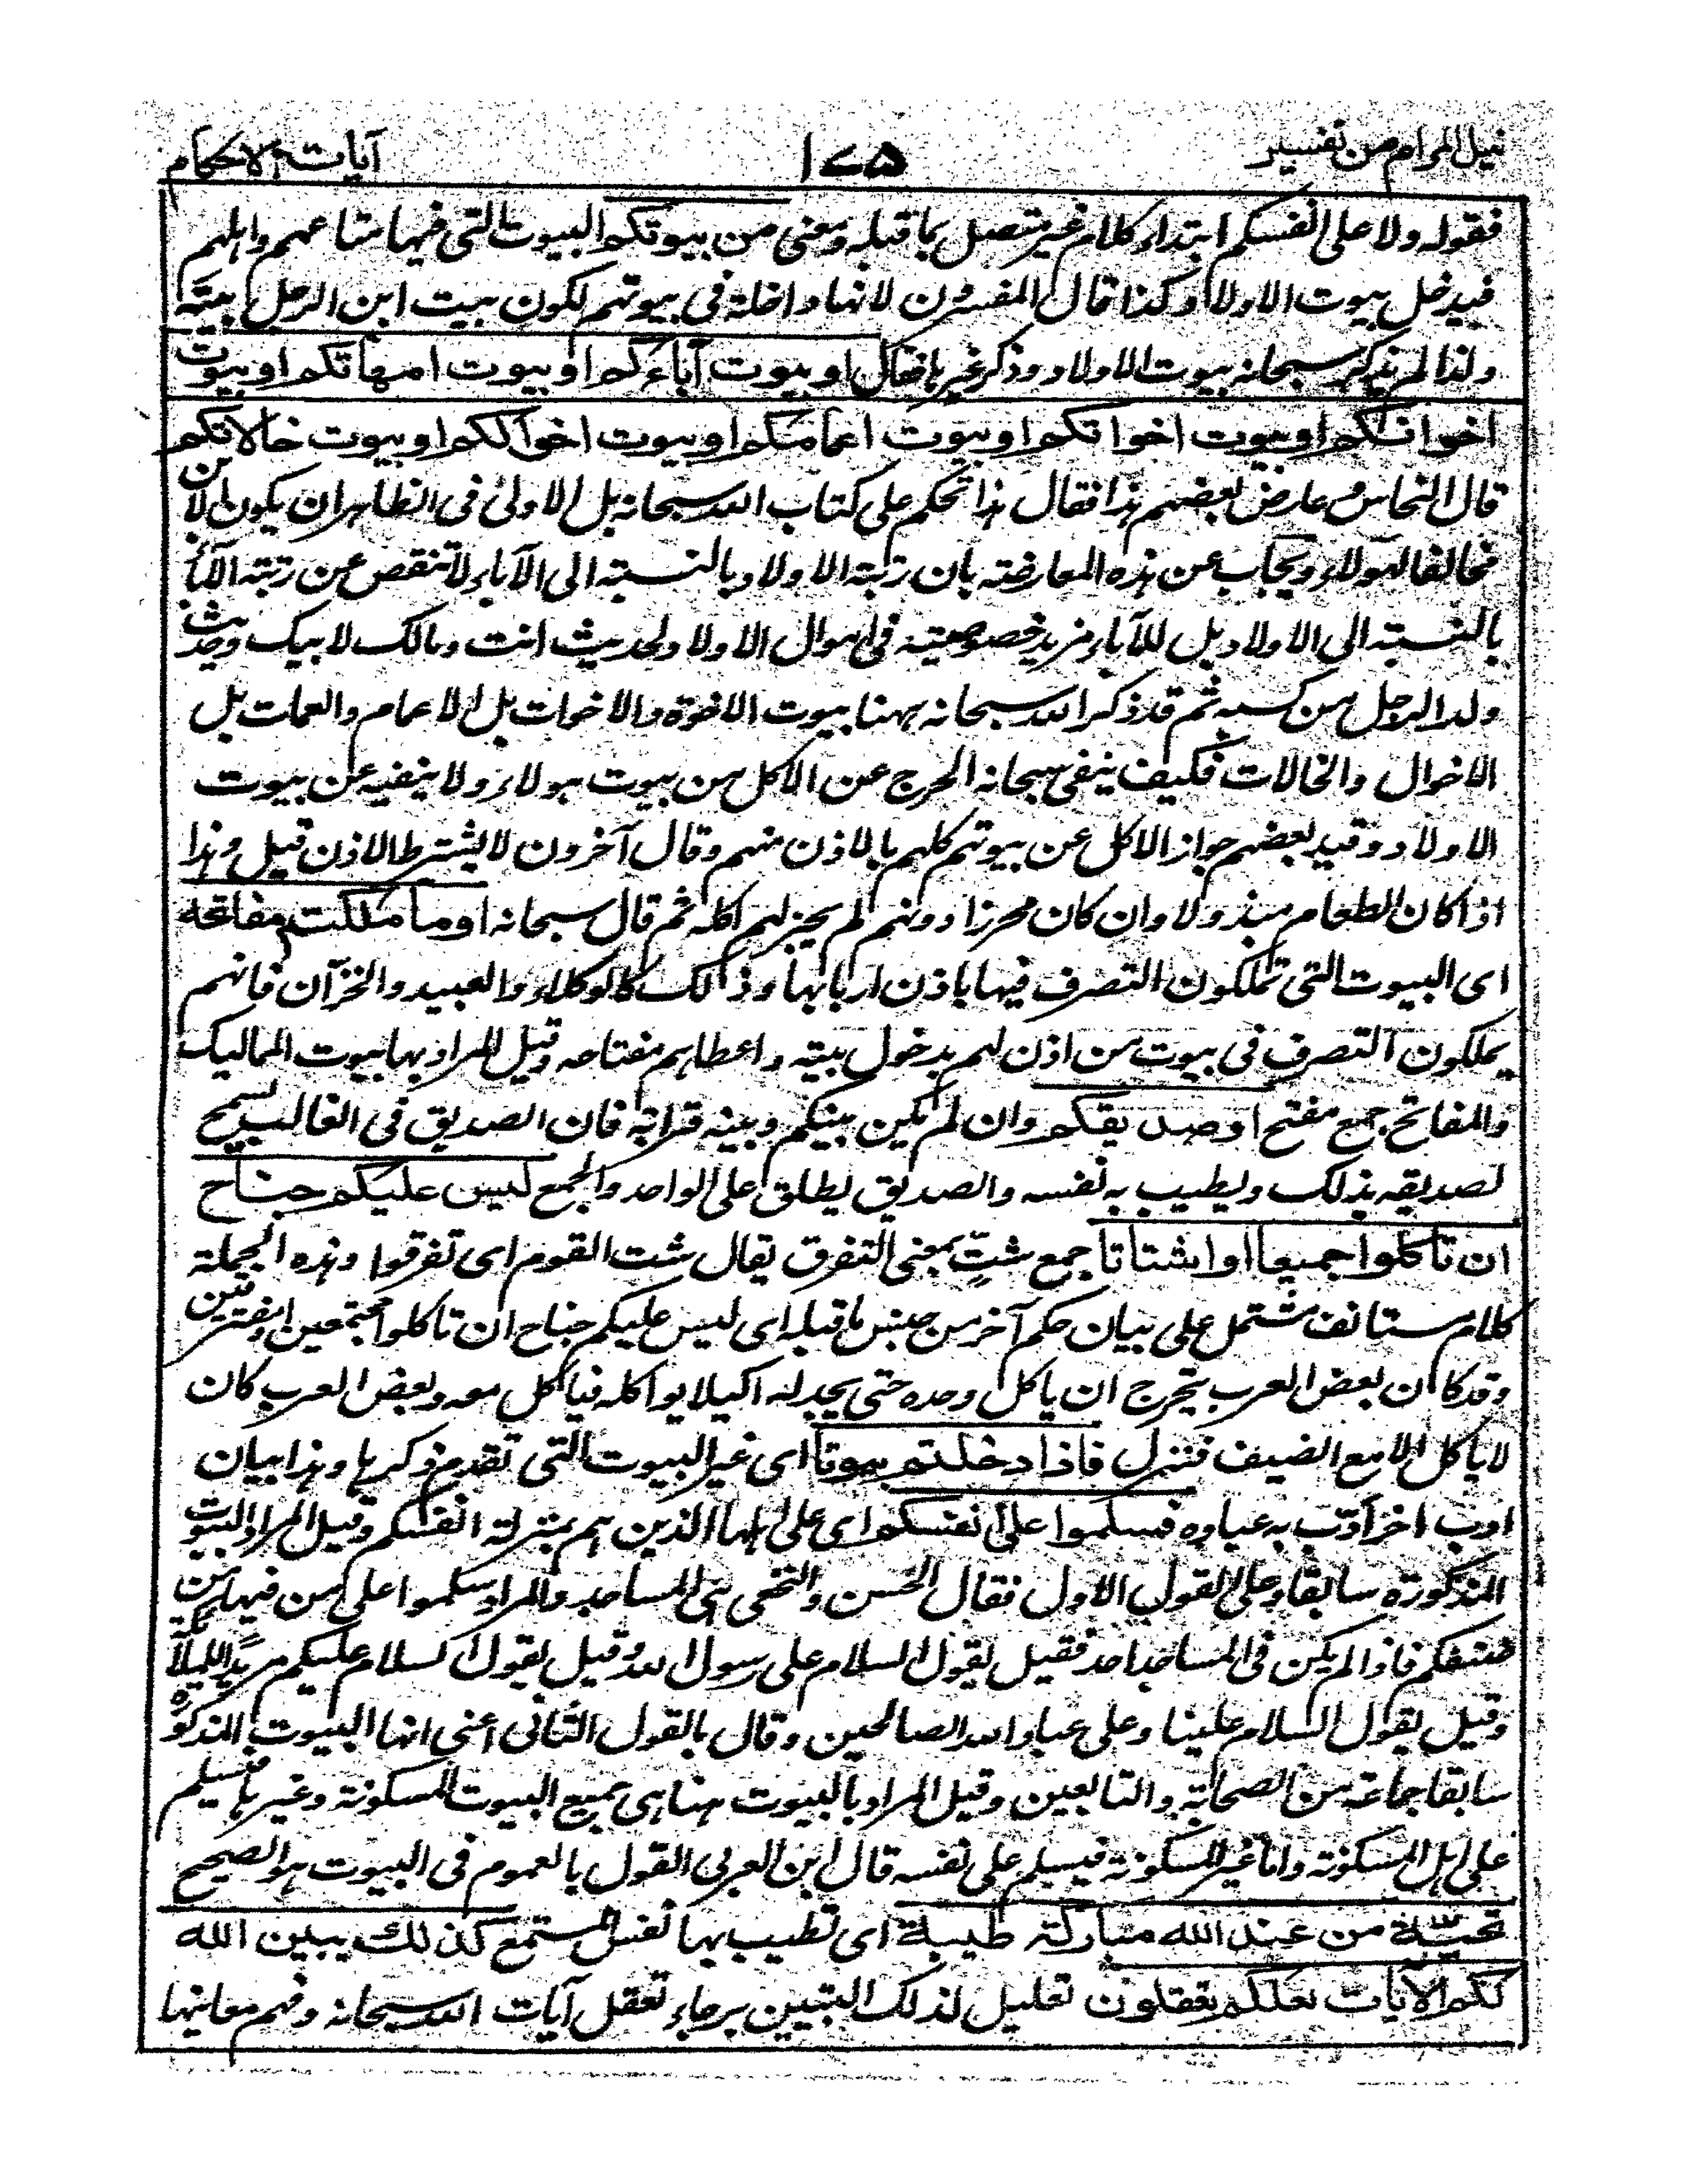 نيل المرام من تفسير ١٧٥ آيات الاحكام
فقوله ولا على انفسكم ابتداء كلام غير متصل بما قبله ومعنى من بيوتكم البيوت التي فيها متاعهم واهلهم
فيدخل بيوت الاولاد وكذا قال المفسرون لانها داخلة في بيوتهم لكون بيت ابن الرجل بيته
ولذا لم يذكر سبحانه بيوت الاولاد وذكر غيرها فقال او بيوت آبائكم او بيوت امهاتكم او بيوت
اخوانكم او بيوت اخواتكم او بيوت اعمامكم او بيوت اخوالكم او بيوت خالاتكم
قال النحاس وعارض بعضهم هذا فقال هذا تحكم على كتاب الله سبحانه بل الاولى في الظاهر ان يكون الابن
مخالفا لهولاء ويجاب عن هذه المعارضة بان رتبة الاولاد بالنسبة الى الآباء لا تنقص عن رتبة الآباء
بالنسبة الى الاولاد بل للآباء مزيد خصوصية في اموال الاولاد لحديث انت ومالك لابيك وحديث
ولد الرجل من كسبه ثم قد ذكر الله سبحانه ههنا بيوت الاخوة والاخوات بل الاعمام والعمات بل
الاخوال والخالات فكيف ينفي سبحانه الحرج عن الاكل من بيوت هولاء ولا ينفيه عن بيوت
الاولاد وقيد بعضهم جواز الاكل عن بيوتهم كلهم بالاذن منهم وقال آخرون لا يشترط الاذن قيل وهذا
اذا كان الطعام مبذولا وان كان محرزا دونهم لم يجز لهم اكله ثم قال سبحانه او ما ملكتم مفاتحه
اى البيوت التي تملكون التصرف فيها باذن اربابها وذلك كالوكلاء والعبيد والخزان فانهم
يملكون التصرف في بيوت من اذن لهم بدخول بيته واعطاهم مفتاحه وقيل المراد بها بيوت المماليك
والمفاتح جمع مفتح او صديقكم وان لم يكن بينكم وبينه قرابة فان الصديق في الغالب يسمح
لصديقه بذلك ويطيب به نفسه والصديق يطلق على الواحد والجمع ليس عليكم جناح
ان تاكلوا جميعا او اشتاتا جمع شتّ بمعنى التفرق يقال شت القوم اى تفرقوا وهذه الجملة
كلام مستانف مشتمل على بيان حكم آخر من جنس ما قبله اى ليس عليكم جناح ان تاكلوا مجتمعين او مفترقين
وقد كان بعض العرب يتحرج ان ياكل وحده حتى يجد له اكيلا يواكله فياكل معه وبعض العرب كان
لا ياكل الا مع الضيف فنزل فاذا دخلتم بيوتا اى غير البيوت التي تقدم ذكرها وهذا بيان
ادب آخر ادّب به عباده فسلموا على انفسكم اى على اهلها الذين هم بمنزلة انفسكم وقيل المراد البيوت
المذكورة سابقا وعلى القول الاول فقال الحسن والنخعى هى المساجد والمراد سلموا على من فيها من
صنفكم فاذا لم يكن في المساجد احد فقيل يقول السلام على رسول الله وقيل يقول السلام عليكم مريدًا للملائكة
وقيل يقول السلام علينا وعلى عباد الله الصالحين وقال بالقول الثاني اعني انها البيوت المذكورة
سابقا جماعة من الصحابة والتابعين وقيل المراد بالبيوت هنا هى جميع البيوت المسكونة وغيرها فيسلم
على اهل المسكونة واما غير المسكونة فيسلم على نفسه قال ابن العربي القول بالعموم في البيوت هو الصحيح
تحية من عند الله مباركة طيبة اى تطيب بها نفس المستمع كذلك يبين الله
لكم الآيات لعلكم تعقلون تعليل لذلك التبيين برجاء تعقل آيات الله سبحانه وفهم معانيها